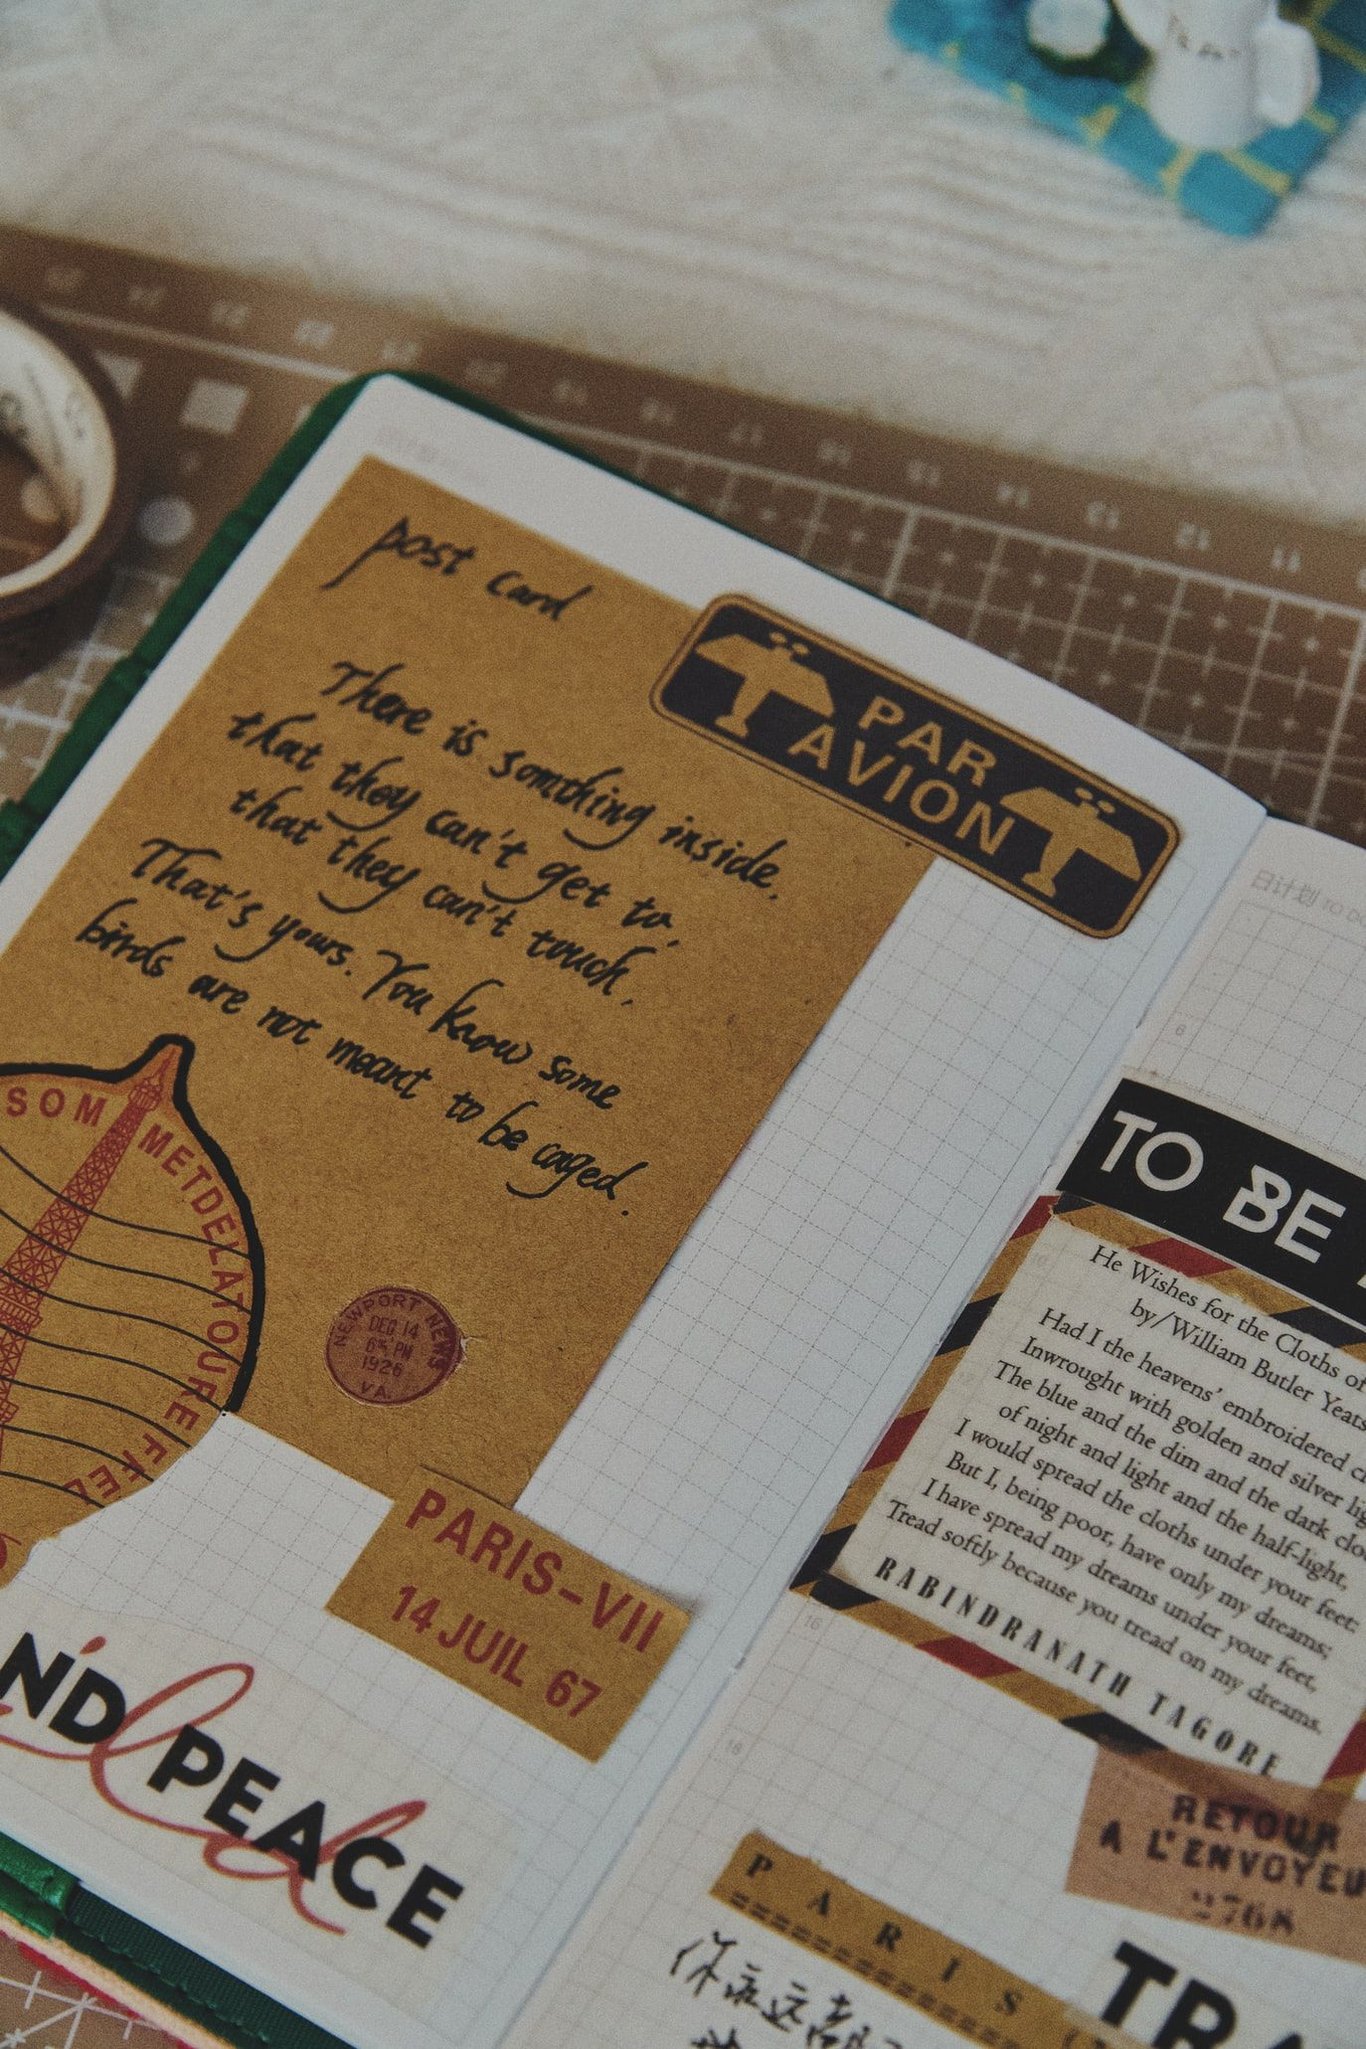 post card
There is somthing inside.
that they can't get to,
that they can't touch.
That's yours. You know some
birds are not meant to be caged.
PAR
AVION
SOM METDELATOUREIFFEL
NEWPORT NEWS
DEC 14
6 PM
1926
VA.
PARIS-VII
14 JUIL 67
ND PEACE
日计划 TO D
6
TO BE
He Wishes for the Cloths of
by/William Butler Yeats
Had I the heavens' embroidered
Inwrought with golden and silver
The blue and the dim and the dark
of night and light and the half-light,
I would spread the cloths under your feet:
But I, being poor, have only my dreams;
I have spread my dreams under your feet,
Tread softly because you tread on my dreams.
RABINDRANATH TAGORE
16
18
RETOUR
A L'ENVOYEU
2768
PARIS
TRA
你应这
11
12
13
14
15
16
17
18
19
20
21
22
23
24
25